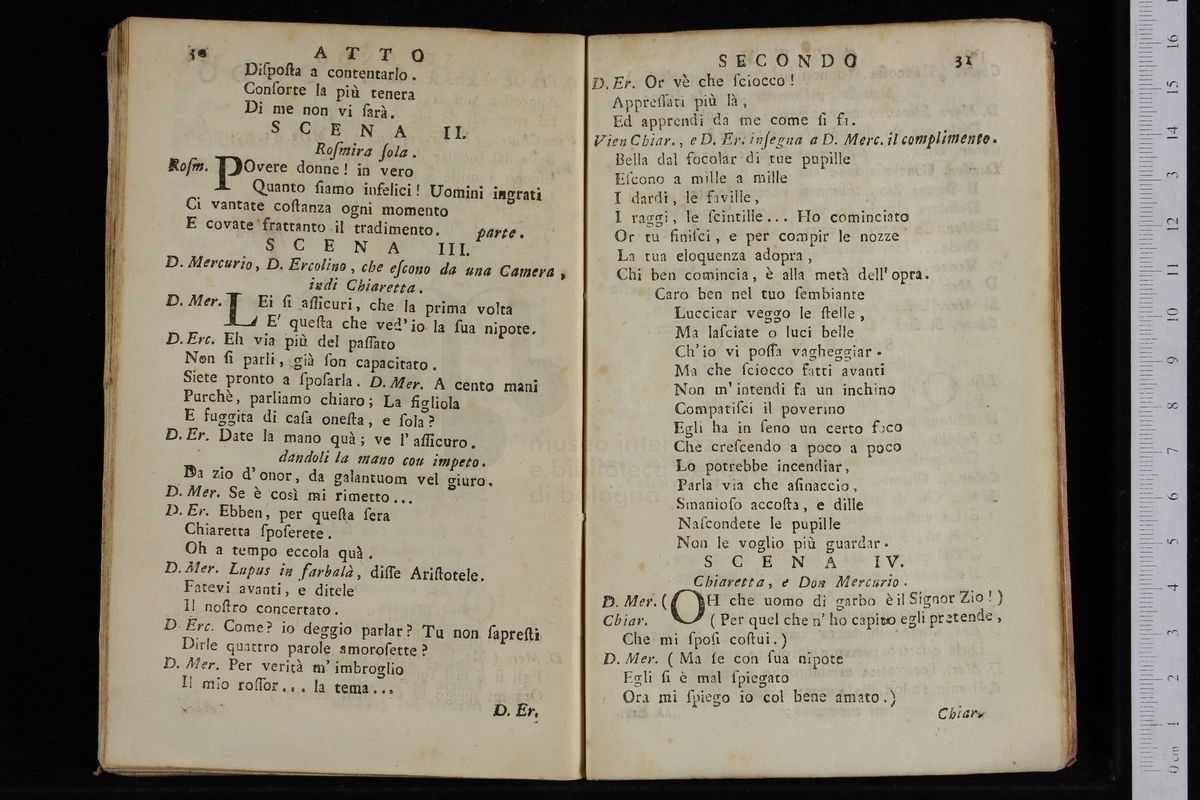 30 ATTO
Diſpoſta a contentarlo.
Conſorte la più tenera
Di me non vi ſarà.
SCENA II.
Roſmira ſola.
Roſm. POvere donne! in vero
Quanto ſiamo infelici! Uomini ingrati
Ci vantate coſtanza ogni momento
E covate frattanto il tradimento. parte.
SCENA III.
D. Mercurio, D. Ercolino, che eſcono da una Camera,
indi Chiaretta.
D. Mer. LEi ſi aſſicuri, che la prima volta
E' queſta che ved'io la ſua nipote.
D. Erc. Eh via più del paſſato
Non ſi parli, già ſon capacitato.
Siete pronto a ſpoſarla. D. Mer. A cento mani
Purchè, parliamo chiaro; La figliola
E fuggita di caſa oneſta, e ſola?
D. Er. Date la mano quà; ve l'aſſicuro.
dandoli la mano con impeto.
Da zio d'onor, da galantuom vel giuro.
D. Mer. Se è così mi rimetto...
D. Er. Ebben, per queſta ſera
Chiaretta ſpoſerete.
Oh a tempo eccola quà.
D. Mer. Lupus in farbalà, diſſe Ariſtotele.
Fatevi avanti, e ditele
Il noſtro concertato.
D. Erc. Come? io deggio parlar? Tu non ſapreſti
Dirle quattro parole amoroſette?
D. Mer. Per verità m'imbroglio
Il mio roſſor... la tema...
D. Er.
SECONDO 31
D. Er. Or vè che ſciocco!
Appreſſati più là,
Ed apprendi da me come ſi fa.
Vien Chiar., e D. Er. inſegna a D. Merc. il complimento.
Bella dal focolar di tue pupille
Eſcono a mille a mille
I dardi, le faville,
I raggi, le ſcintille... Ho cominciato
Or tu finiſci, e per compir le nozze
La tua eloquenza adopra,
Chi ben comincia, è alla metà dell'opra.
Caro ben nel tuo ſembiante
Luccicar veggo le ſtelle,
Ma laſciate o luci belle
Ch'io vi poſſa vagheggiar.
Ma che ſciocco fatti avanti
Non m'intendi fa un inchino
Compatiſci il poverino
Egli ha in ſeno un certo foco
Che creſcendo a poco a poco
Lo potrebbe incendiar,
Parla via che aſinaccio,
Smanioſo accoſta, e dille
Naſcondete le pupille
Non le voglio più guardar.
SCENA IV.
Chiaretta, e Don Mercurio.
D. Mer. (OH che uomo di garbo è il Signor Zio!)
Chiar. (Per quel che n'ho capito egli pretende,
Che mi ſpoſi coſtui.)
D. Mer. (Ma ſe con ſua nipote
Egli ſi è mal ſpiegato
Ora mi ſpiego io col bene amato.)
Chiar.
museo inter
e bibliotec
di bologna
0 cm 1 2 3 4 5 6 7 8 9 10 11 12 13 14 15 16